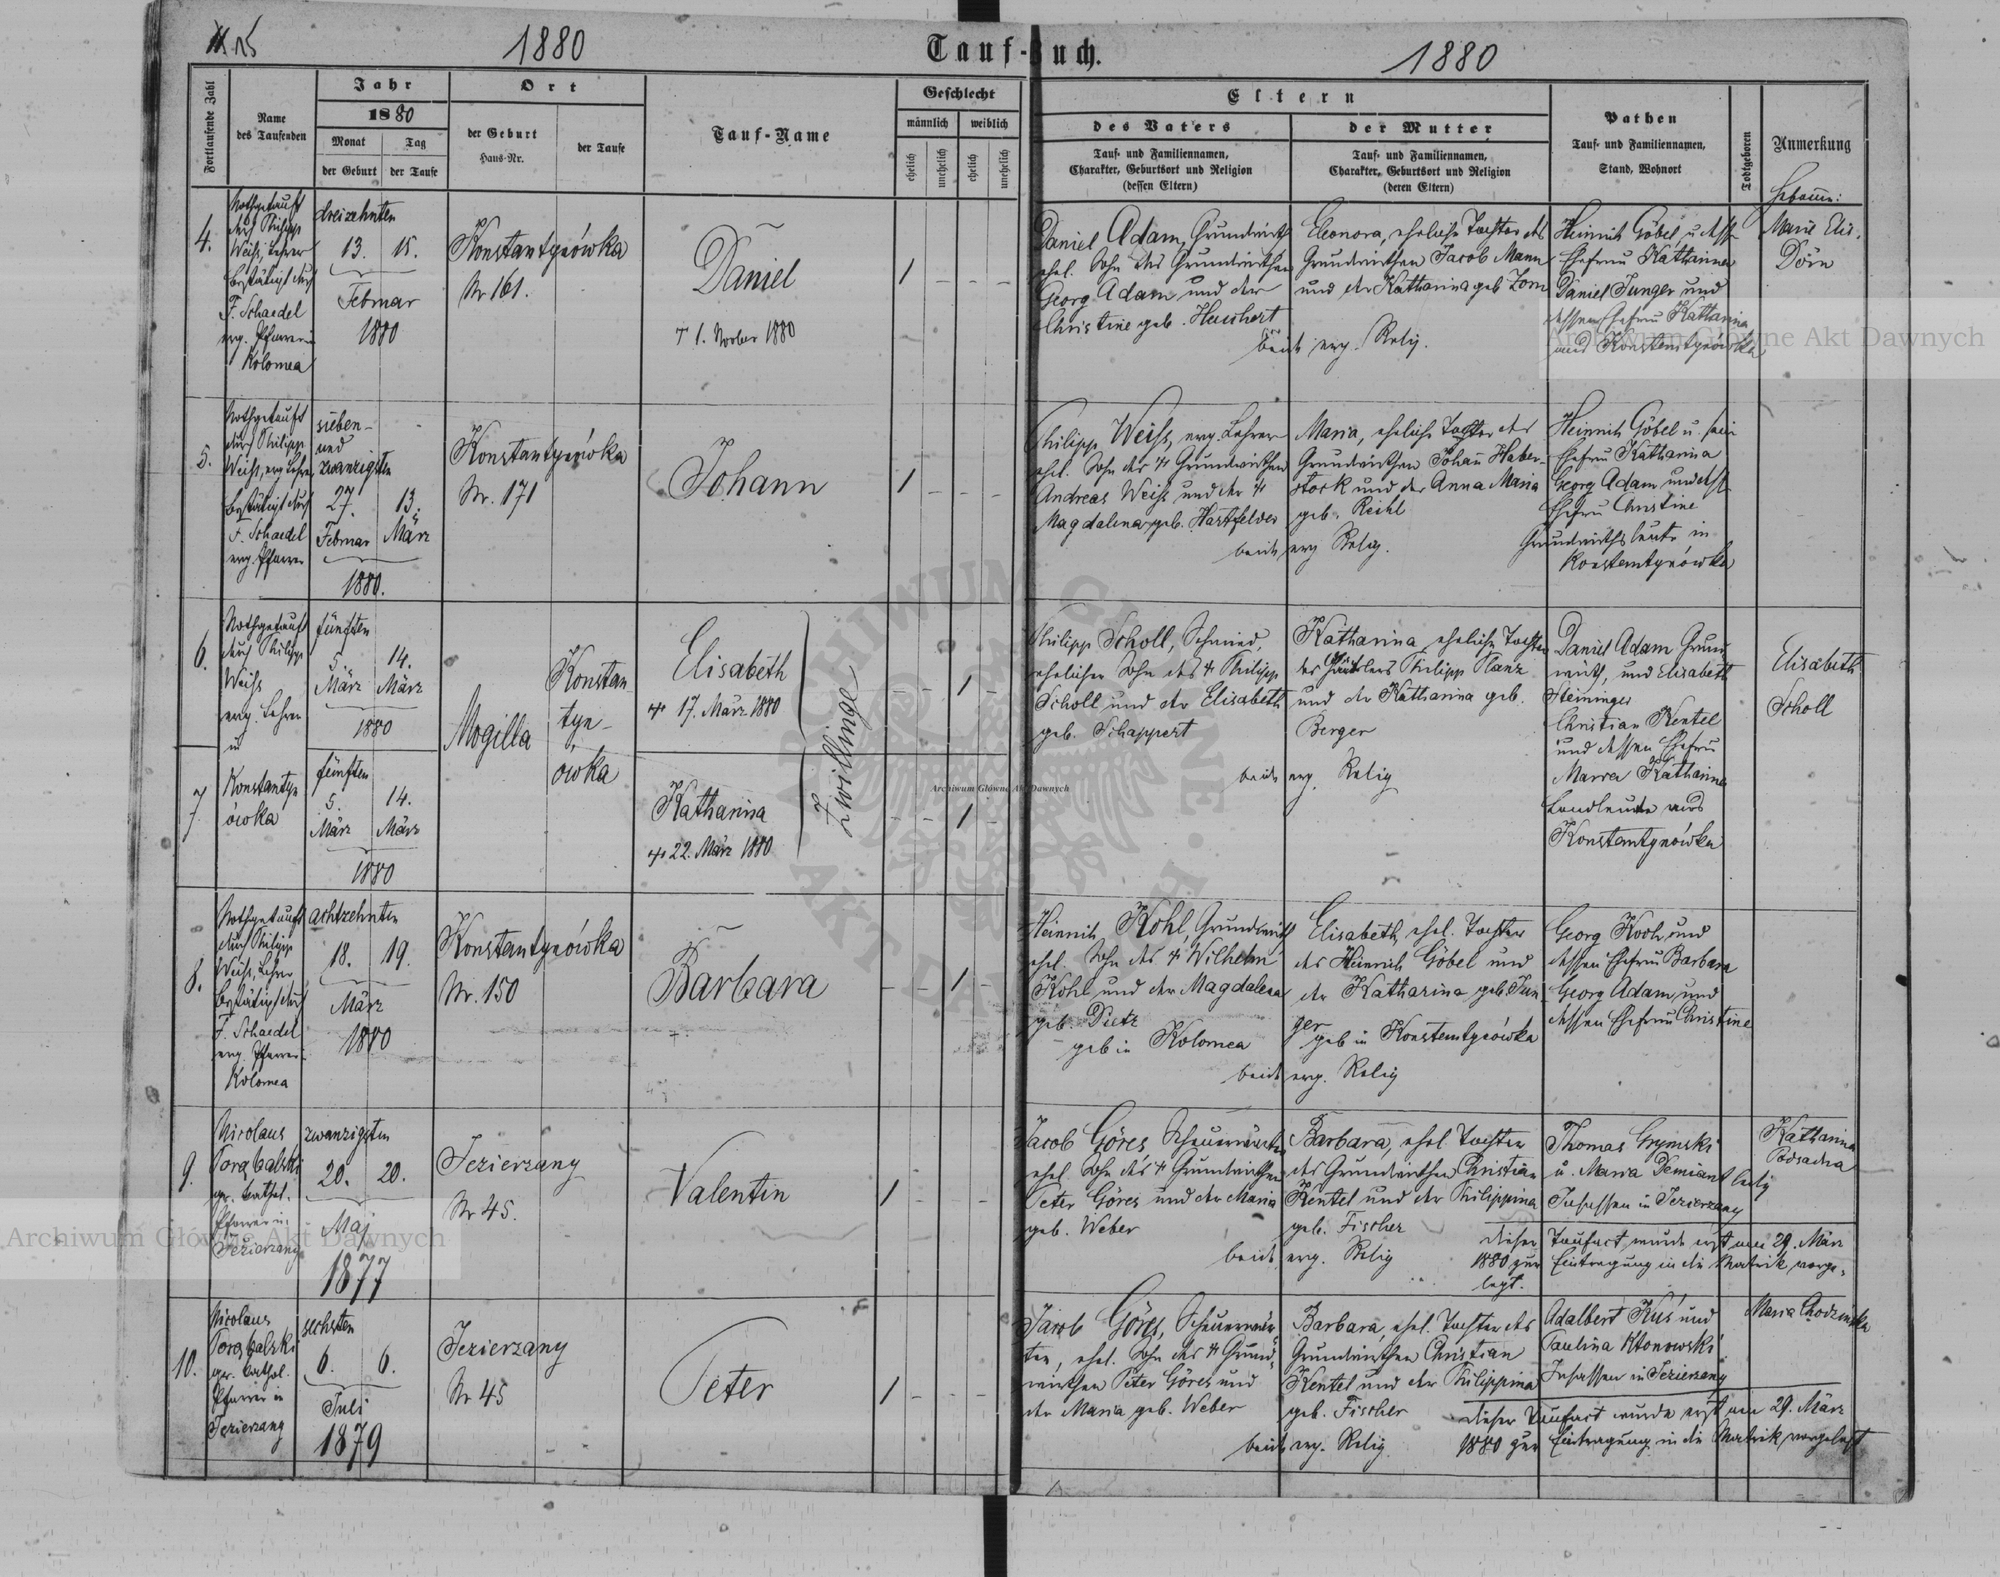 1880
Tauf-Buch.
1880
Fortlaufende Zahl
Name
des Taufenden
Jahr
1880
Monat
Tag
der Geburt
der Taufe
Ort
der Geburt
Haus-Nr.
der Taufe
Tauf-Name
Geschlecht
männlich
weiblich
ehelich
unehelich
ehelich
unehelich
Eltern
des Vaters
Tauf- und Familiennamen,
Charakter, Geburtsort und Religion
(dessen Eltern)
der Mutter
Tauf- und Familiennamen,
Charakter, Geburtsort und Religion
(deren Eltern)
Pathen
Tauf- und Familiennamen,
Stand, Wohnort
Todtgeboren
Anmerkung
4.
Nothgetauft
durch Philipp
Weiß, Lehrer
bestätigt durch
F. Schaedel
evg. Pfarrer in
Kolomea
dreizehnten
13. 15.
Februar
1880
Konstantynówka
Nr 161.
Daniel
† 1. Novber 1880
1 - - -
Daniel Adam, Grundwirth
ehel. Sohn des Grundwirthen
Georg Adam und der
Christine geb.
Eleonora, eheliche Tochter des
Grundwirthen Jacob Mann
und der Katharina geb Zorn
beide evg. Relig.
Heinrich Göbel, u. dess
Ehefrau Katharina
Daniel Junger und
dessen Ehefrau Katharina
aus Konstantynówka
Hebamme:
Marie Elis.
Dörn
5.
Nothgetauft
durch Philipp
Weiß, evg Lehrer
bestätigt durch
F. Schaedel
evg. Pfarrer
sieben-
und
zwanzigsten
27. 13.
Februar März
1880.
Konstantynówka
Nr. 171
Johann
1 - - -
Philipp Weiß, evg. Lehrer
ehel. Sohn des † Grundwirthen
Andreas Weiß und der †
Magdalena geb. Hartfelder
Maria, eheliche Tochter des
Grundwirthen Johann Haber-
stock und der Anna Maria
geb. Reihl
beide evg Relig.
Heinrich Göbel u. sein
Ehefrau Katharina
Georg Adam und dess
Ehefrau Christine
Grundwirthsleute in
Konstantynówka
6.
Nothgetauft
durch Philipp
Weiß
evg. Lehrer
in
Konstantyn
ówka
fünften
5. 14.
März März
1880
Mogilla
Konstan
tyn-
ówka
Elisabeth
† 17. März 1880
Zwillinge
- - 1 -
Philipp Scholl, Schmied,
ehelicher Sohn des † Philipp
Scholl und der Elisabeth
geb. Schappert
Katharina, eheliche Tochter
des Häuslers Philipp Planz
und der Katharina geb.
Berger
beide evg. Relig
Daniel Adam Grund
wirth, und Elisabeth
Steininger
Christian Kentel
und dessen Ehefrau
Maria Katharina
Landleute aus
Konstantynówka
Elisabeth
Scholl
7
fünften
5. 14.
März März
1880
Katharina
† 22. März 1880
- - 1 -
8.
Nothgetauft
durch Philipp
Weiß, Lehrer
bestätigt durch
F. Schaedel
evg. Pfarrer
Kolomea
achtzehnten
18. 19.
März
1880
Konstantynówka
Nr. 150
Barbara
- - 1 -
Heinrich Kohl, Grundwirth
ehel. Sohn des † Wilhelm
Kohl und der Magdalena
geb. Dietz
geb in Kolomea
Elisabeth, ehel. Tochter
des Heinrich Göbel und
der Katharina geb. Jun
ger
geb in Konstantynówka
beide evg. Relig
Georg Koch und
dessen Ehefrau Barbara
Georg Adam und
dessen Ehefrau Christine
9.
Nicolaus
gr. Cathol.
Pfarrer in
Jezierzany
zwanzigsten
20. 20.
Maj
1877
Jezierzany
Nr 45.
Valentin
1 -
Jacob Göres, Scheuerwärter
ehel. Sohn des † Grundwirthen
Peter Göres und der Maria
geb. Weber
Barbara, ehel Tochter
des Grundwirthen Christian
Kentel und der Philippina
geb. Fischer
beide evg. Relig
Thomas Grymski
u. Maria Demiant ledig
Insassen in Jezierzany
Katharina
Posadna
dieser Taufact wurde erst am 29. März
1880 zur Eintragung in die Matrik vorge-
legt.
10.
Nicolaus
gr. Cathol.
Pfarrer in
Jezierzany
sechsten
6. 6.
Juli
1879
Jezierzany
Nr 45
Peter
1 - - -
Jacob Göres, Scheuerwär
ter, ehel. Sohn des † Grund-
wirthen Peter Göres und
der Maria geb. Weber
Barbara, ehel. Tochter des
Grundwirthen Christian
Kentel und der Philippina
geb. Fischer
beide evg. Relig
Adalbert Kuś und
Paulina Ktonowski
Insassen in Jezierzany
Maria Chodzinska
dieser Taufact wurde erst am 29. März
1880 zur Eintragung in die Matrik vorgelegt
Archiwum Główne Akt Dawnych
Archiwum Główne Akt Dawnych
Archiwum Główne Akt Dawnych